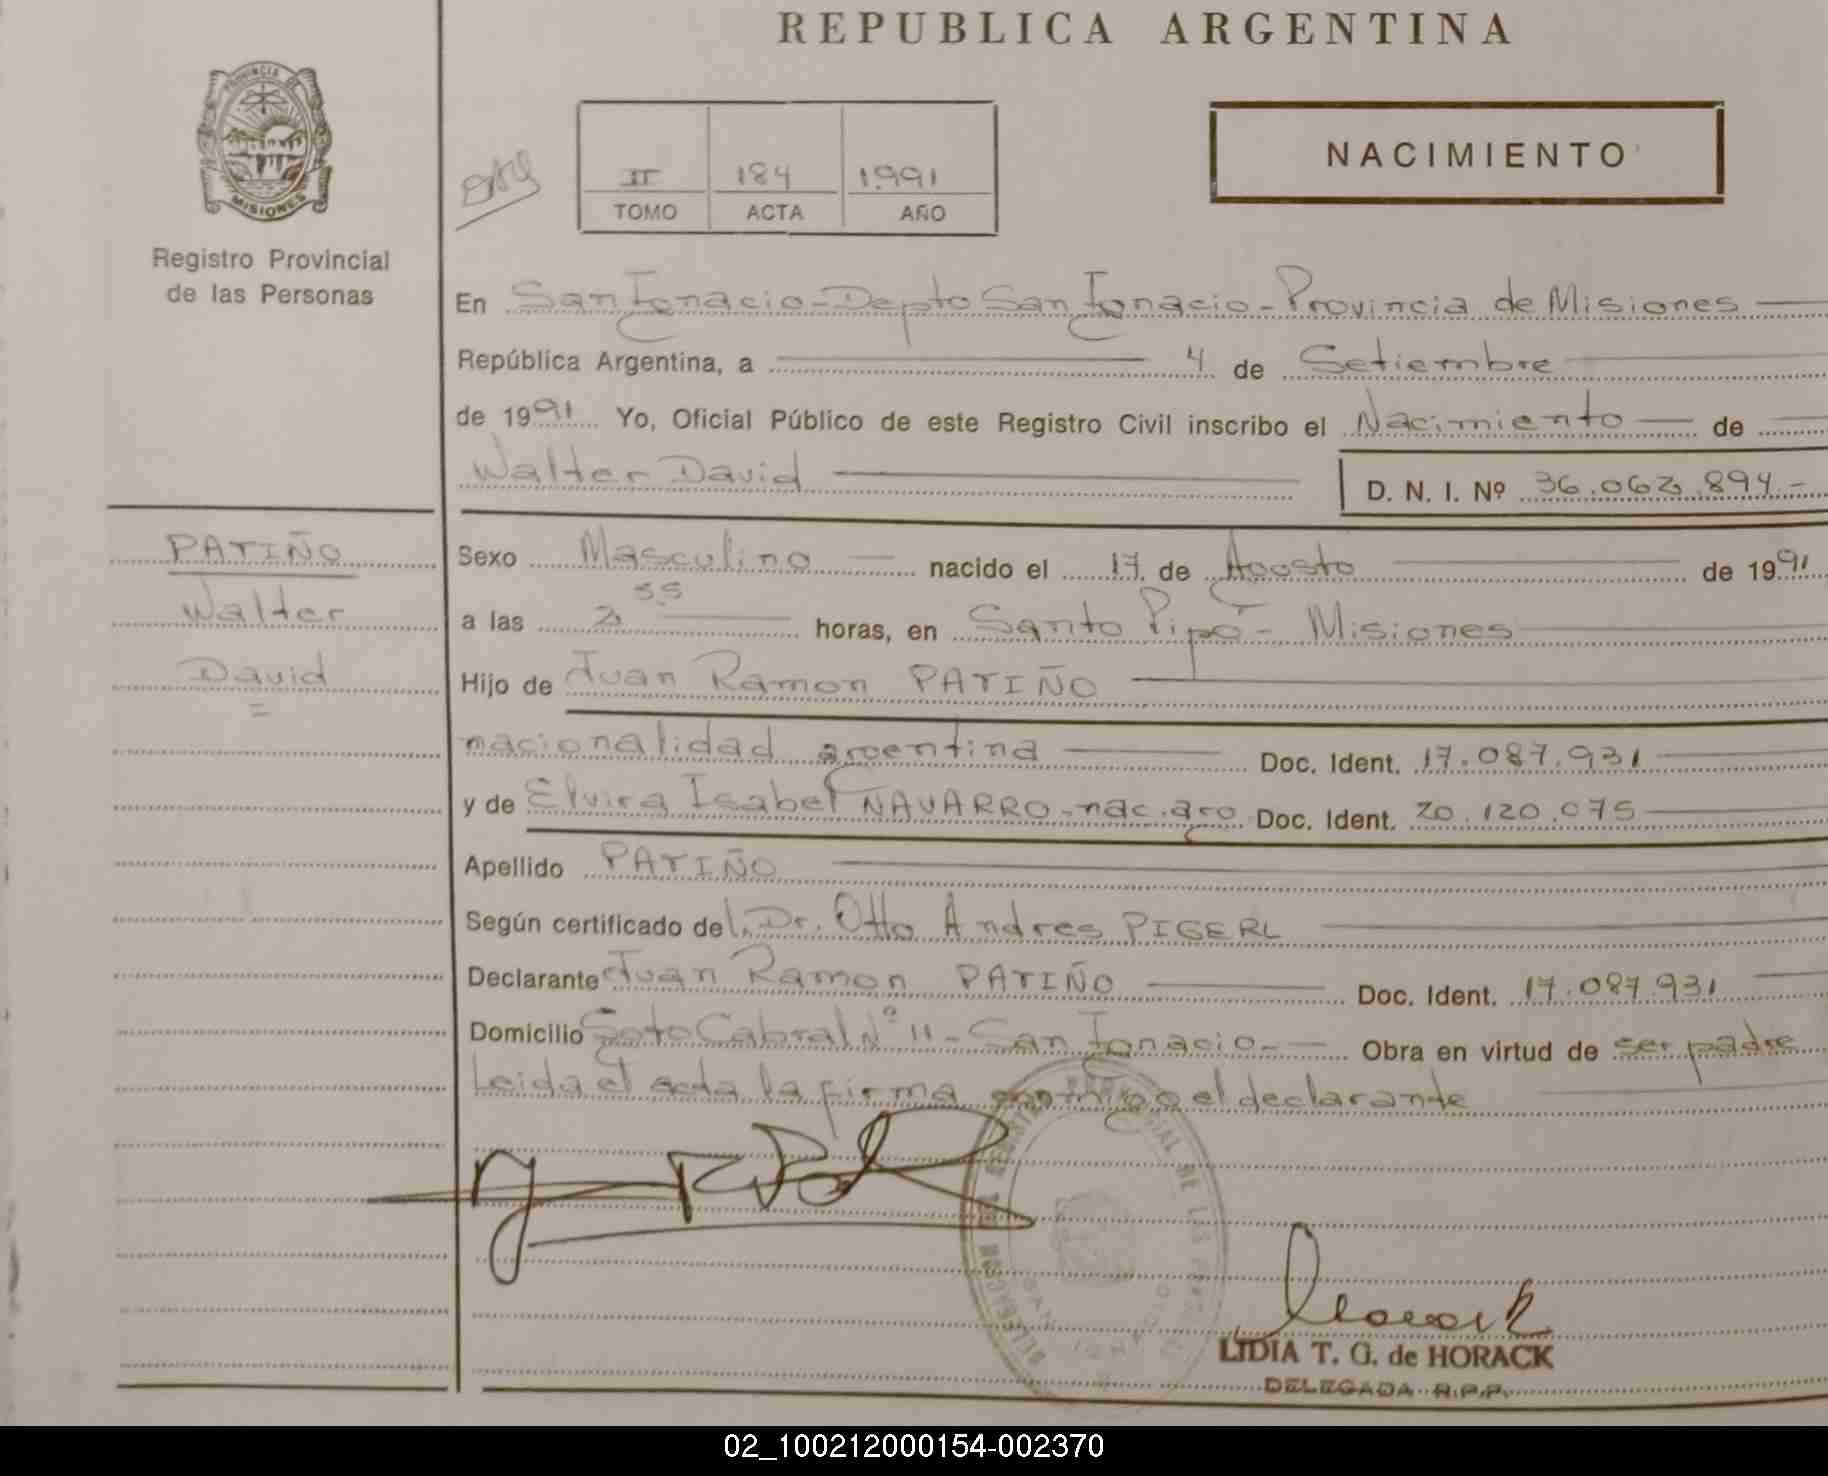 REPUBLICA ARGENTINA
PROVINCIA DE
MISIONES
Registro Provincial
de las Personas
II 184 1.991
TOMO ACTA AÑO
NACIMIENTO
En San Ignacio - Depto San Ignacio - Provincia de Misiones
República Argentina, a 4 de Setiembre
de 1991 Yo, Oficial Público de este Registro Civil inscribo el Nacimiento de
Walter David D. N. I. Nº 36.063.894.-
PATIÑO
Walter
David
Sexo Masculino nacido el 17 de Agosto de 1991
a las 2 55 horas, en Santo Pipó - Misiones
Hijo de Juan Ramon PATIÑO
nacionalidad argentina Doc. Ident. 17.087.931
y de Elvira Isabel NAVARRO - nac. arg. Doc. Ident. 20.120.075
Apellido PATIÑO
Según certificado del Dr. Otto Andres PIGERL
Declarante Juan Ramon PATIÑO Doc. Ident. 17.087.931
Domicilio Soto Cabral Nº 11 - San Ignacio - Obra en virtud de ser padre
Leida el acta la firma conmigo el declarante
LIDIA T. G. de HORACK
DELEGADA R.P.P.
02_100212000154-002370